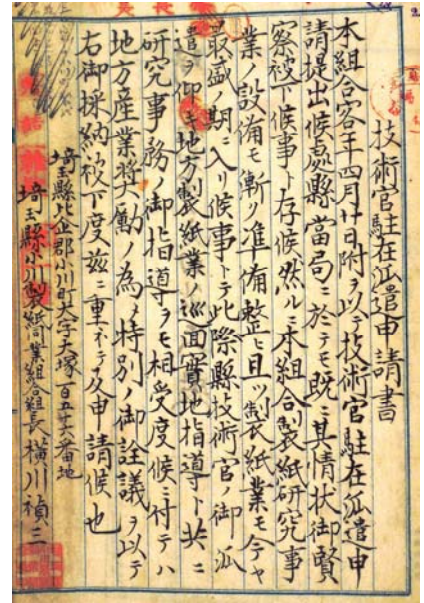 技術官駐在派遣申請書
本組合客年四月廿日附ヲ以テ技術官駐在派遣申
請提出候處縣當局ニ於テモ既ニ其情状御賢
察被下候事ト存候然ルニ本組合製紙研究事
業ノ設備モ漸ク准備整ヒ且ツ製紙業モ今ヤ
最盛ノ期ニ入リ候事トテ此際縣技術官ノ御派
遣ヲ仰キ地方製紙業ノ巡回實地指導ト共ニ
研究事務ノ御指導ヲモ相受度候ニ付テハ
地方産業奨励ノ為メ特別ノ御詮議ヲ以テ
右御採納被下度茲ニ重ネテ及申請候也
埼玉縣比企郡小川町大字大塚百五十六番地
埼玉縣小川製紙同業組合組長 横川禎三